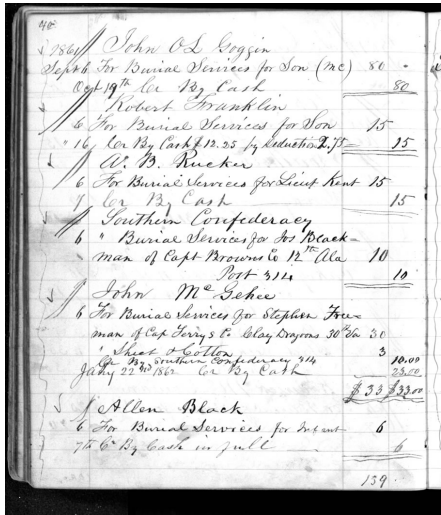 40
1861 John O L Goggin
Sept 6 For Burial Services for Son (mc) 80
Oct 19th Cr By Cash 80
Robert Franklin
6 For Burial Services for Son 15
" 16 Cr By Cash $12.25 by Deduction 2.75 15
W. B. Rucker
6 For Burial Services for Lieut Kent 15
9 Cr By Cash 15
Southern Confederacy
6 " Burial Services for Jos Black=
man of Capt Browns Co 12th Ala 10
Post 314 10
John McGehee
6 For Burial Services for Stephen Free
man of Cap Terry's Co Clay Dragons 30th Va 30
Sheet & Cotton 3
Cr By Southern Confederacy 314 10.00
Jany 22nd 1862 Cr By Cash 23.00
$33 $33.00
Allen Black
6 For Burial Services for Infant 6
7th Cr By Cash in full 6
139